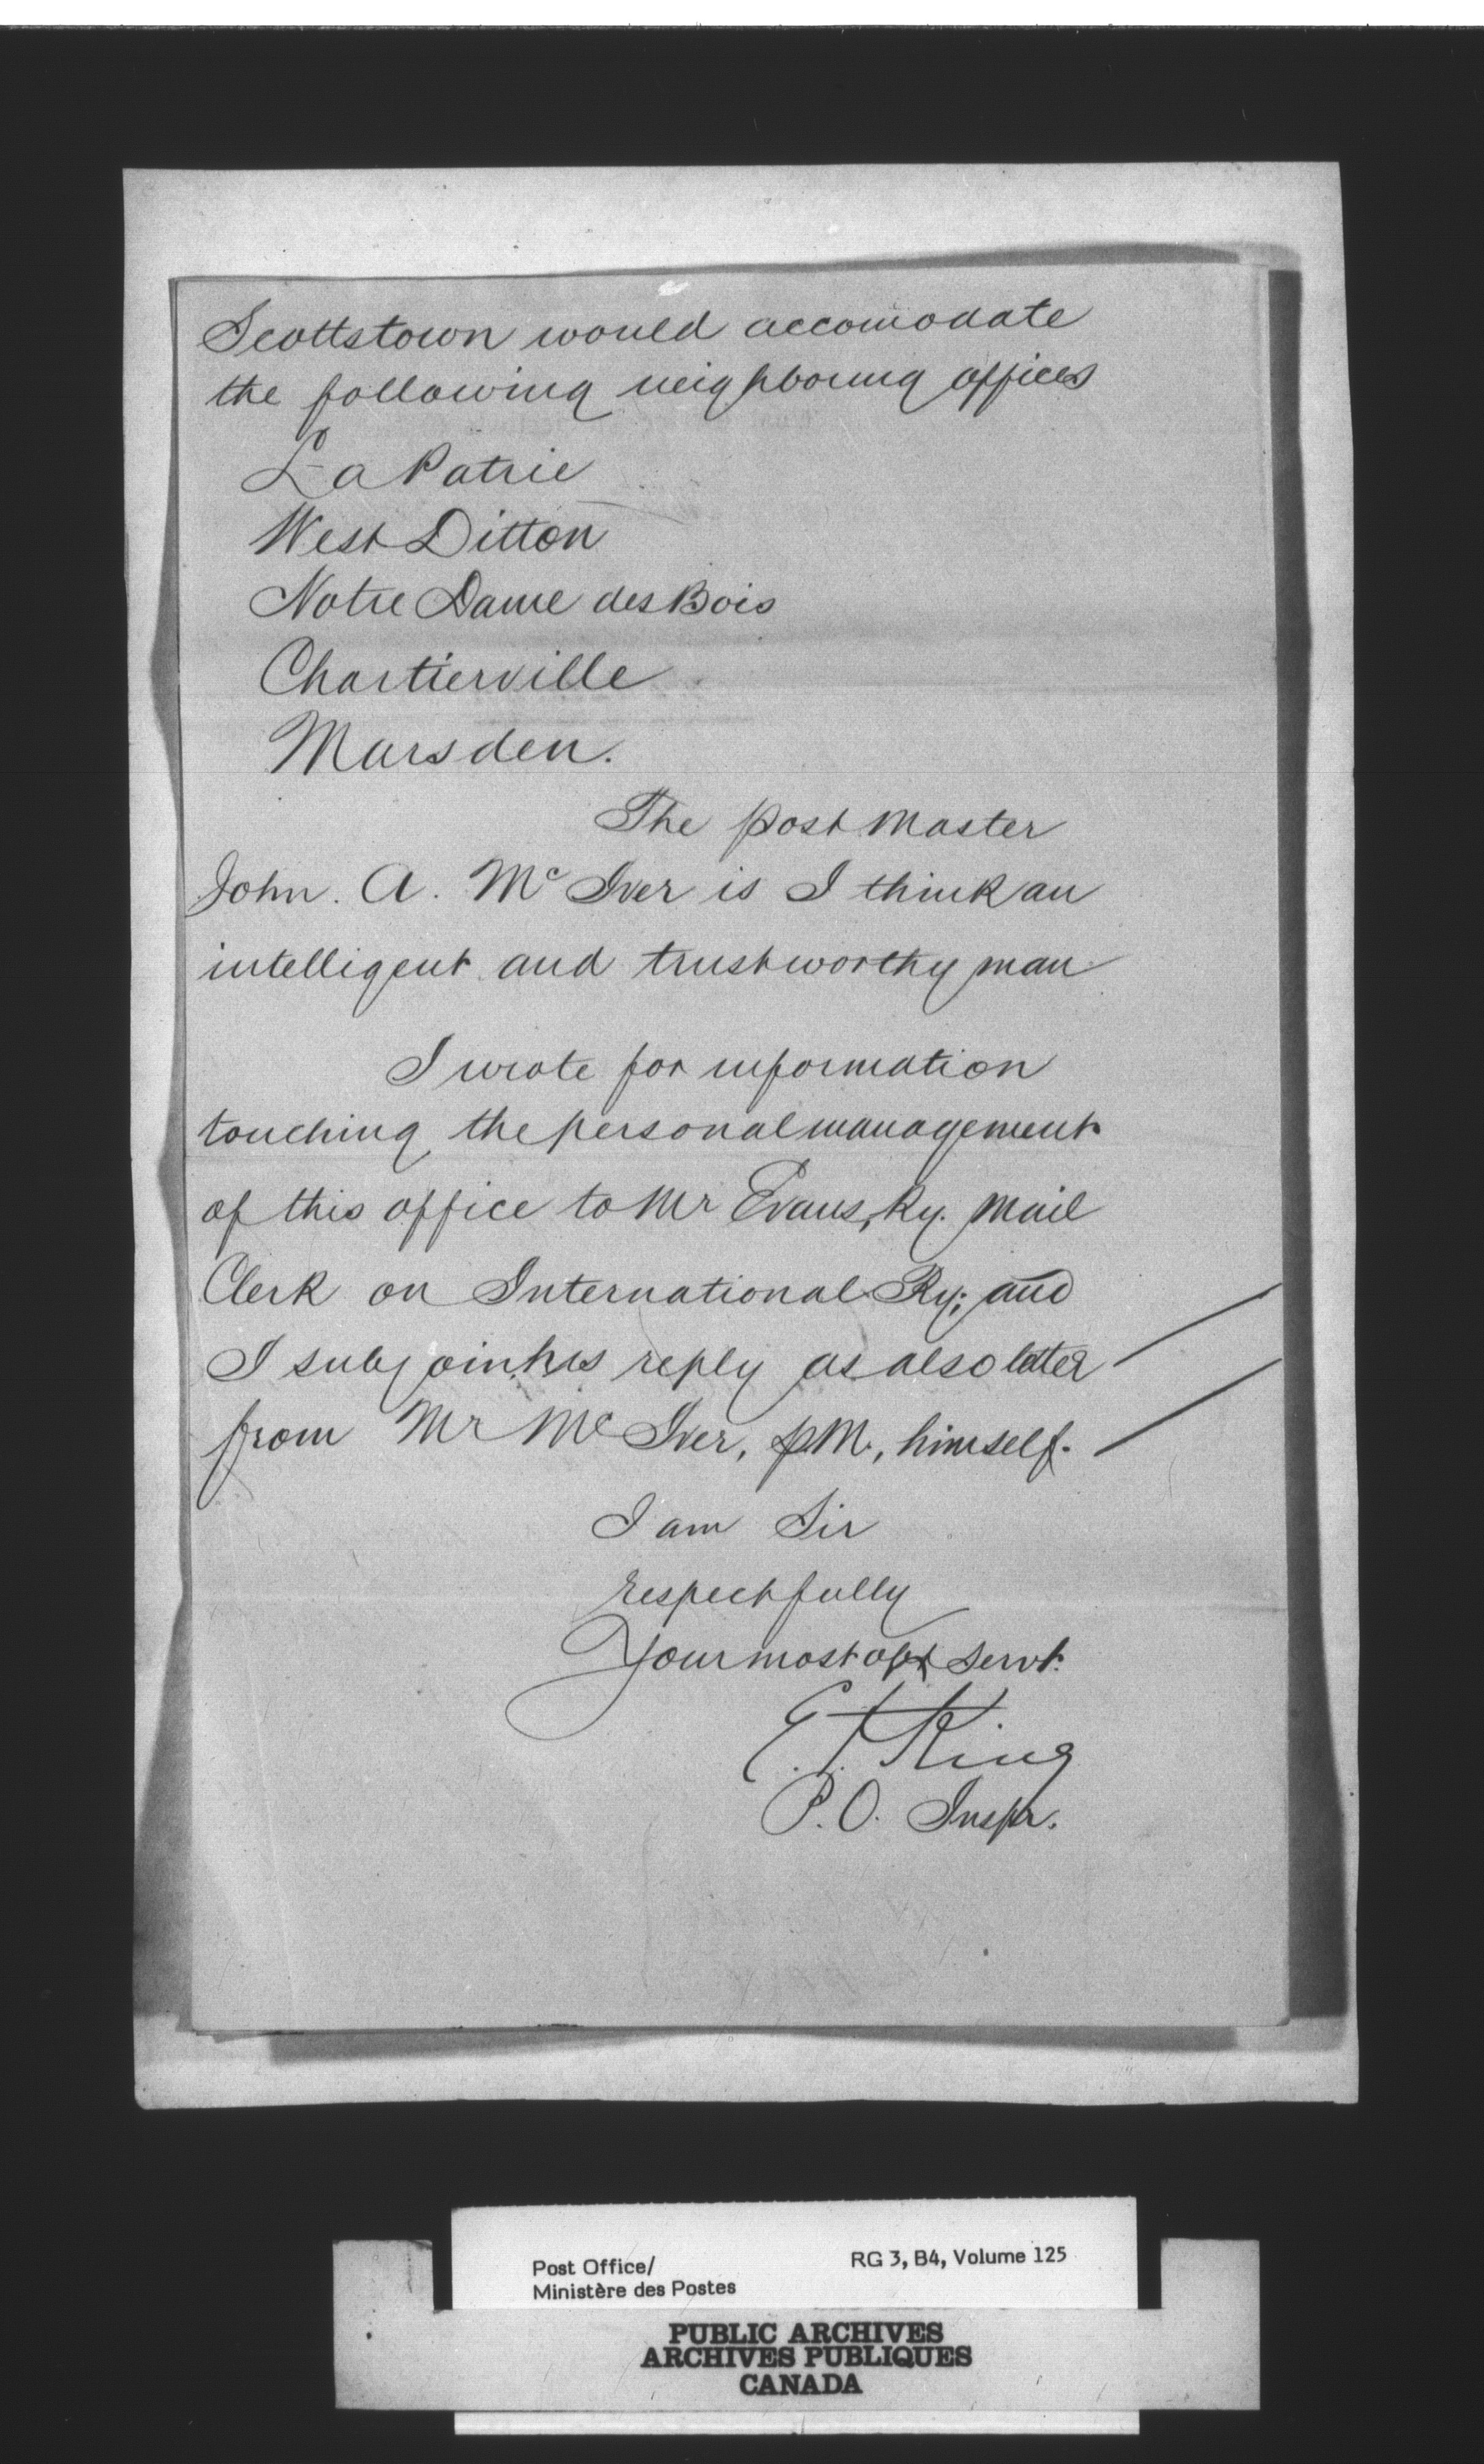 Scottstown would accomodate
the following neighboring offices
La Patrie
West Ditton
Notre Dame des Bois
Chartierville
Marsden.
The post Master
John. A. Mc Iver is I think an
intelligent and trustworthy man
I wrote for information
touching the personal management
of this office to Mr Evans, Ry. Mail
Clerk on International Ry; and
I subjoin his reply as also letter
from Mr Mc Iver, pM., himself.
I am Sir
respectfully
Your most obt servt.
E. F. King
P. O. Inspr.
Post Office/
Ministère des Postes
RG 3, B4, Volume 125
PUBLIC ARCHIVES
ARCHIVES PUBLIQUES
CANADA